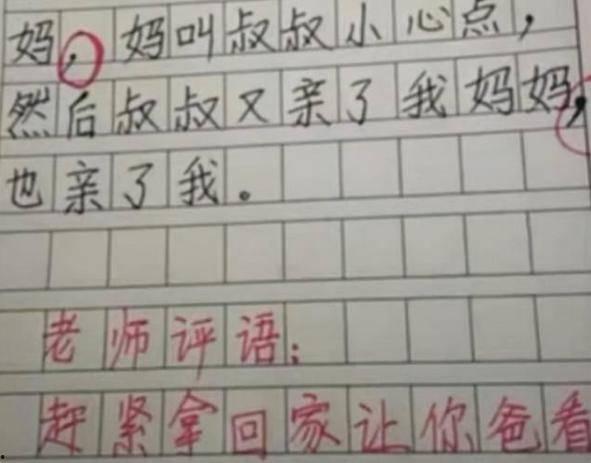 妈，妈叫叔叔小心点，
然后叔叔又亲了我妈妈，
也亲了我。
老师评语：
赶紧拿回家让你爸看